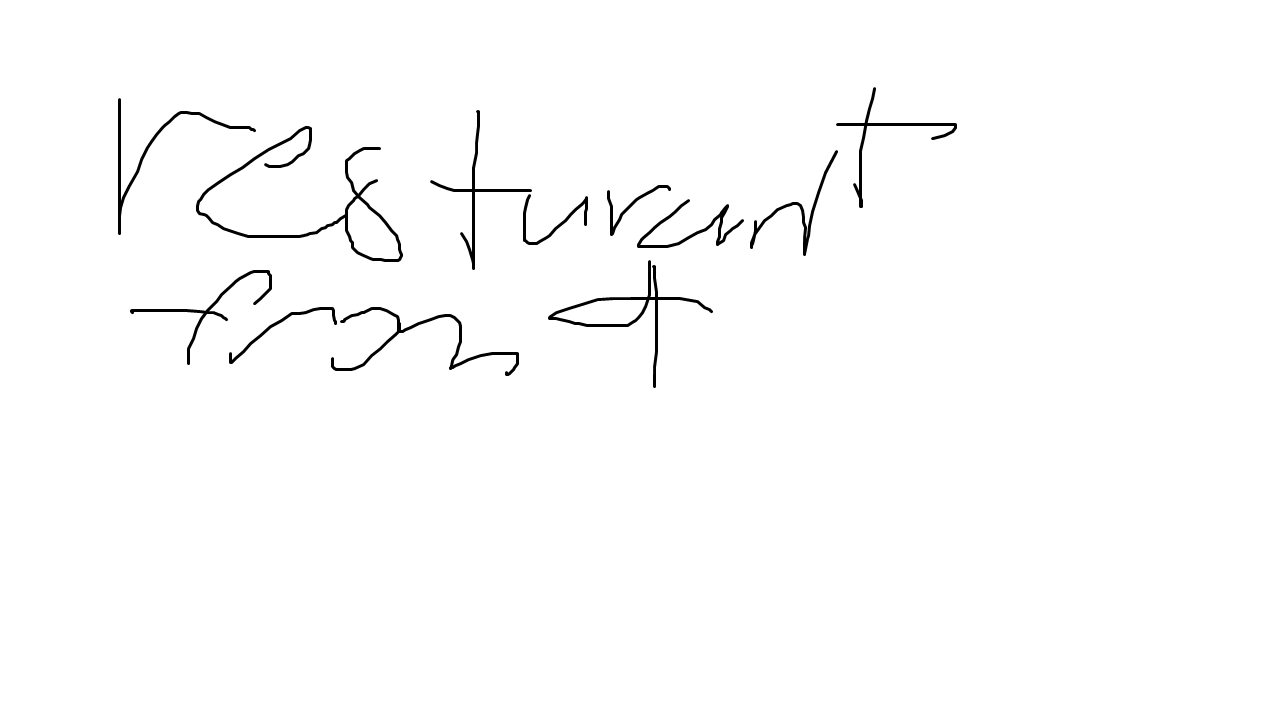 resturant
from